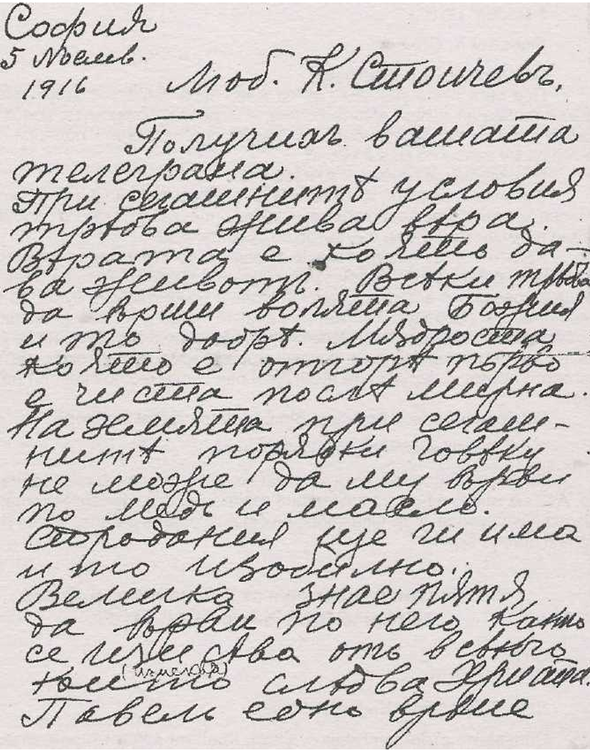 София
5 Ноемв.
1916
Люб. К. Стоичевъ,
Получихъ вашата
телеграма.
При сегашнитѣ условия
трѣбва жива вѣра.
Вѣрата е която да-
ва животъ. Всѣки трѣбва
да върши волята Божия
и то добрѣ. Мѫдростта
която е отгорѣ първо
е чиста послѣ мирна.
На земята при сегаш-
нитѣ порядки човѣку
не може да му върви
по медъ и масло.
Страдания ще ги има
и то изобилно.
Велика знае пѫтя
да върви по него както
се изисква отъ всѣкого
(изисква)
който следва Христа.
Павелъ едно време